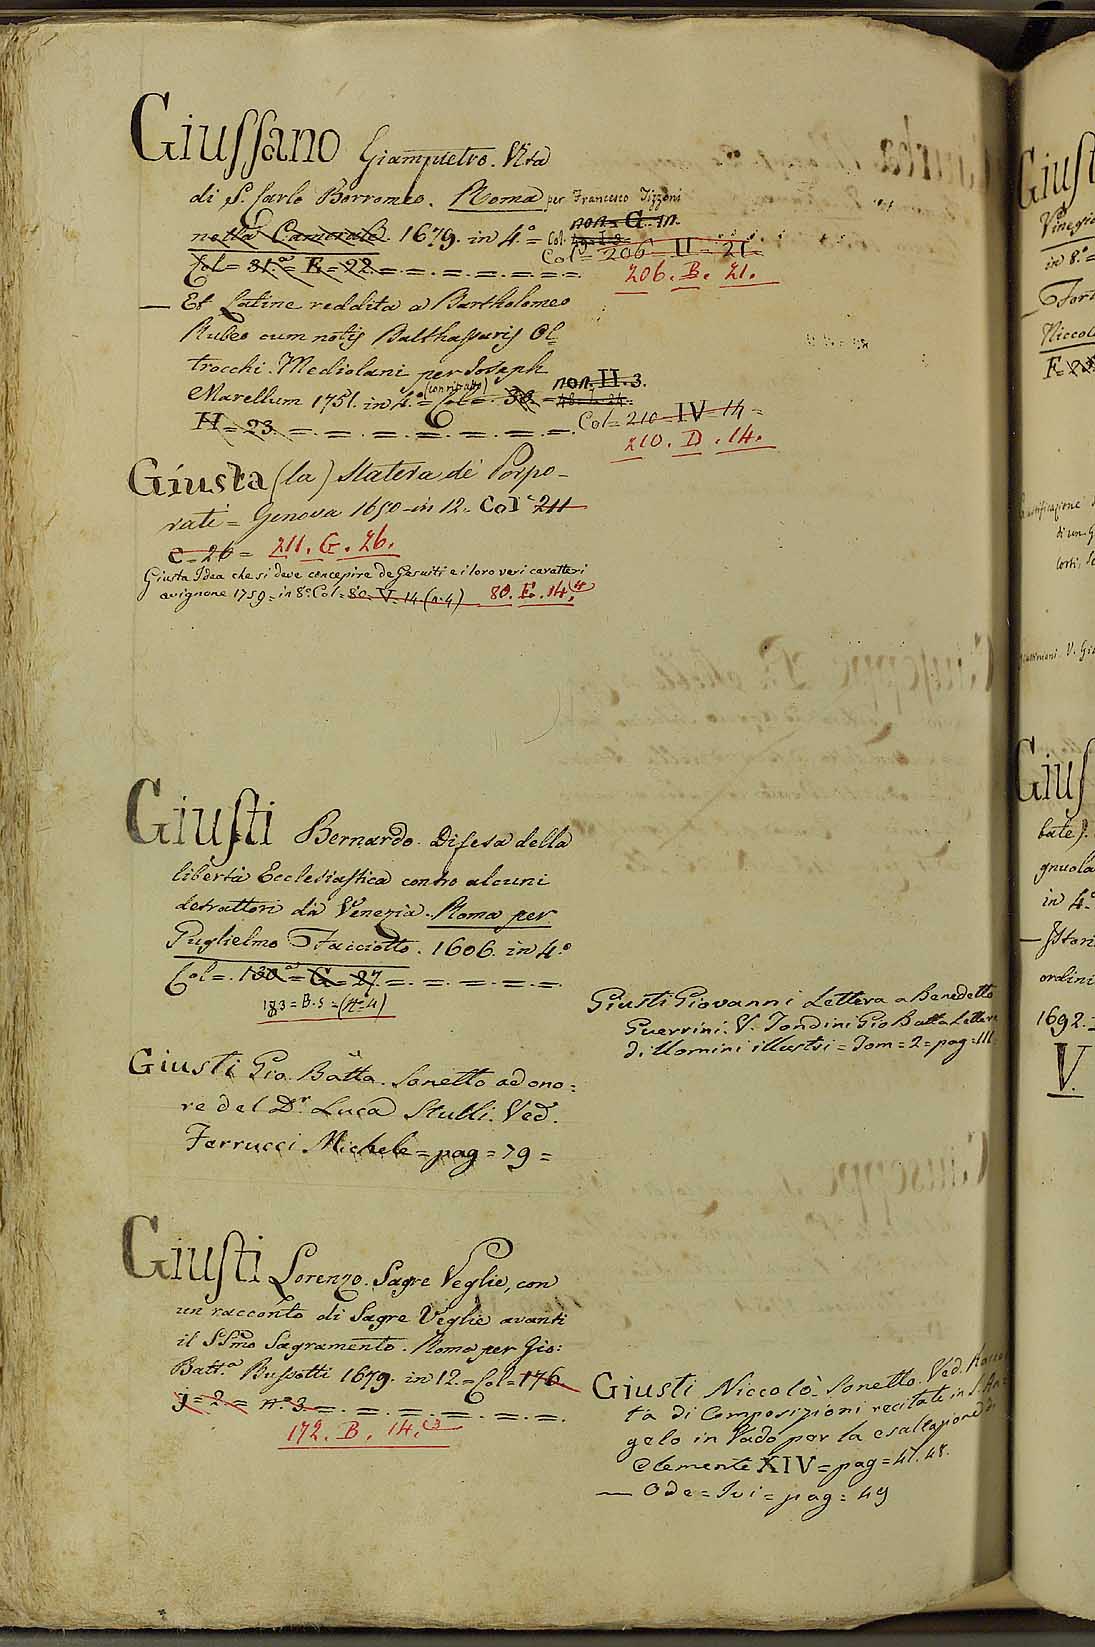 Giussano Giampietro. Vita
di S. Carlo Borromeo. Roma per Francesco Tizzoni
nella Camerale. 1679. in 4.º = Col.
non G. m.
Col = 31.ª = E = 22. = Col = 206 II = 21.
206. B. 21.
— Et Latine reddita a Bartholomeo
Rubeo cum notis Balthassaris Ol=
trocchi. Mediolani per Joseph
Marellum 1751. in 4.º = Col = 38. = non H. 3.
H = 23. = Col = 210 = IV = 14 =
210. D. 14.
Giusta (la) Statera de Porpo-
rati = Genova 1650 = in 12. Col = 211
e = 26 = 211. G. 26.
Giusta Idea che si deve concepire de Gesuiti e i loro veri caratteri
avignone 1759 = in 8.º Col = 80. V. 14. (n. 4) 80. E. 14. (4
Giusti Bernardo. Difesa della
libertà Ecclesiastica contro alcuni
detrattori di Venezia. Roma per
Guglielmo Facciotto. 1606. in 4.º
Col = 130ª = G = 27. =
183 = B. 5 = (nº 4)
Giusti Giovanni Lettera a Benedetto
Guerrini. V. Tondini Gio Batta Lettere
di Uomini illustri = Tom = 2 = pag = 111 =
Giusti Gio. Batta. Sonetto ad ono=
re del Dr. Luca Stulli. Ved.
Ferrucci Michele = pag = 79 =
Giusti Lorenzo. Sagre Veglie, con
un racconto di Sagre Veglie avanti
il SSmo Sagramento. Roma per Gio:
Batt.ª Bussotti 1679. in 12. = Col = 176
j = 2. = nº 3.
172. B. 14. (3
Giusti Niccolò. Sonetto. Ved. Raccol
ta di Composizioni recitate in S. An=
gelo in Vado per la esaltazione di
Clemente XIV = pag = 47. 48.
— Ode = Ivi = pag = 49
Giust
in 8.º =
Niccol
Giustificazione
Gius
bate).
gnuola
in 4.º
— Istori
ordini
1692. =
V.